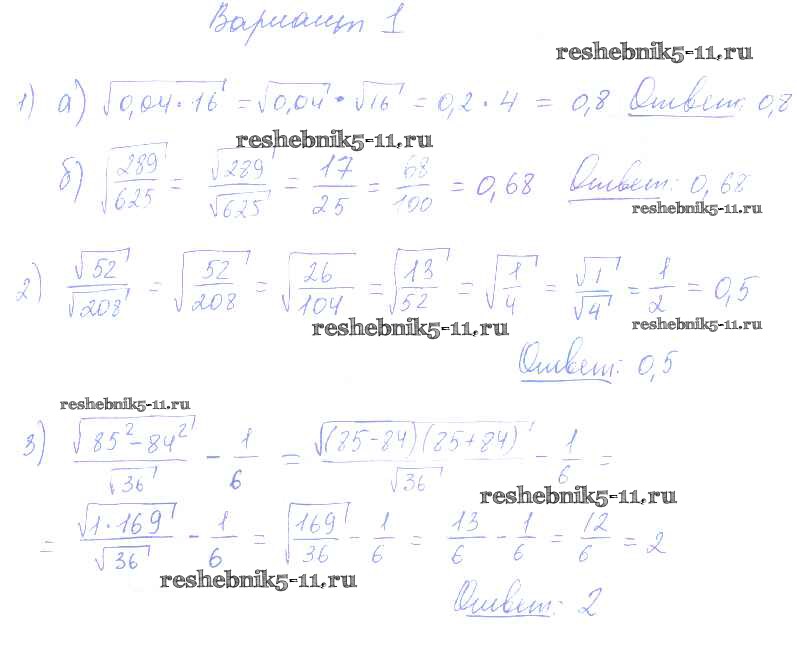 Вариант 1
reshebnik5-11.ru
1) а) √(0,04 · 16) = √0,04 · √16 = 0,2 · 4 = 0,8 Ответ: 0,8
reshebnik5-11.ru
б) √(289/625) = √289/√625 = 17/25 = 68/100 = 0,68 Ответ: 0,68
reshebnik5-11.ru
2) √52/√208 = √(52/208) = √(26/104) = √(13/52) = √(1/4) = √1/√4 = 1/2 = 0,5
reshebnik5-11.ru reshebnik5-11.ru
Ответ: 0,5
reshebnik5-11.ru
3) √(85² - 84²)/√36 - 1/6 = √((85-84)(85+84))/√36 - 1/6 =
reshebnik5-11.ru
= √(1 · 169)/√36 - 1/6 = √(169/36) - 1/6 = 13/6 - 1/6 = 12/6 = 2
reshebnik5-11.ru
Ответ: 2